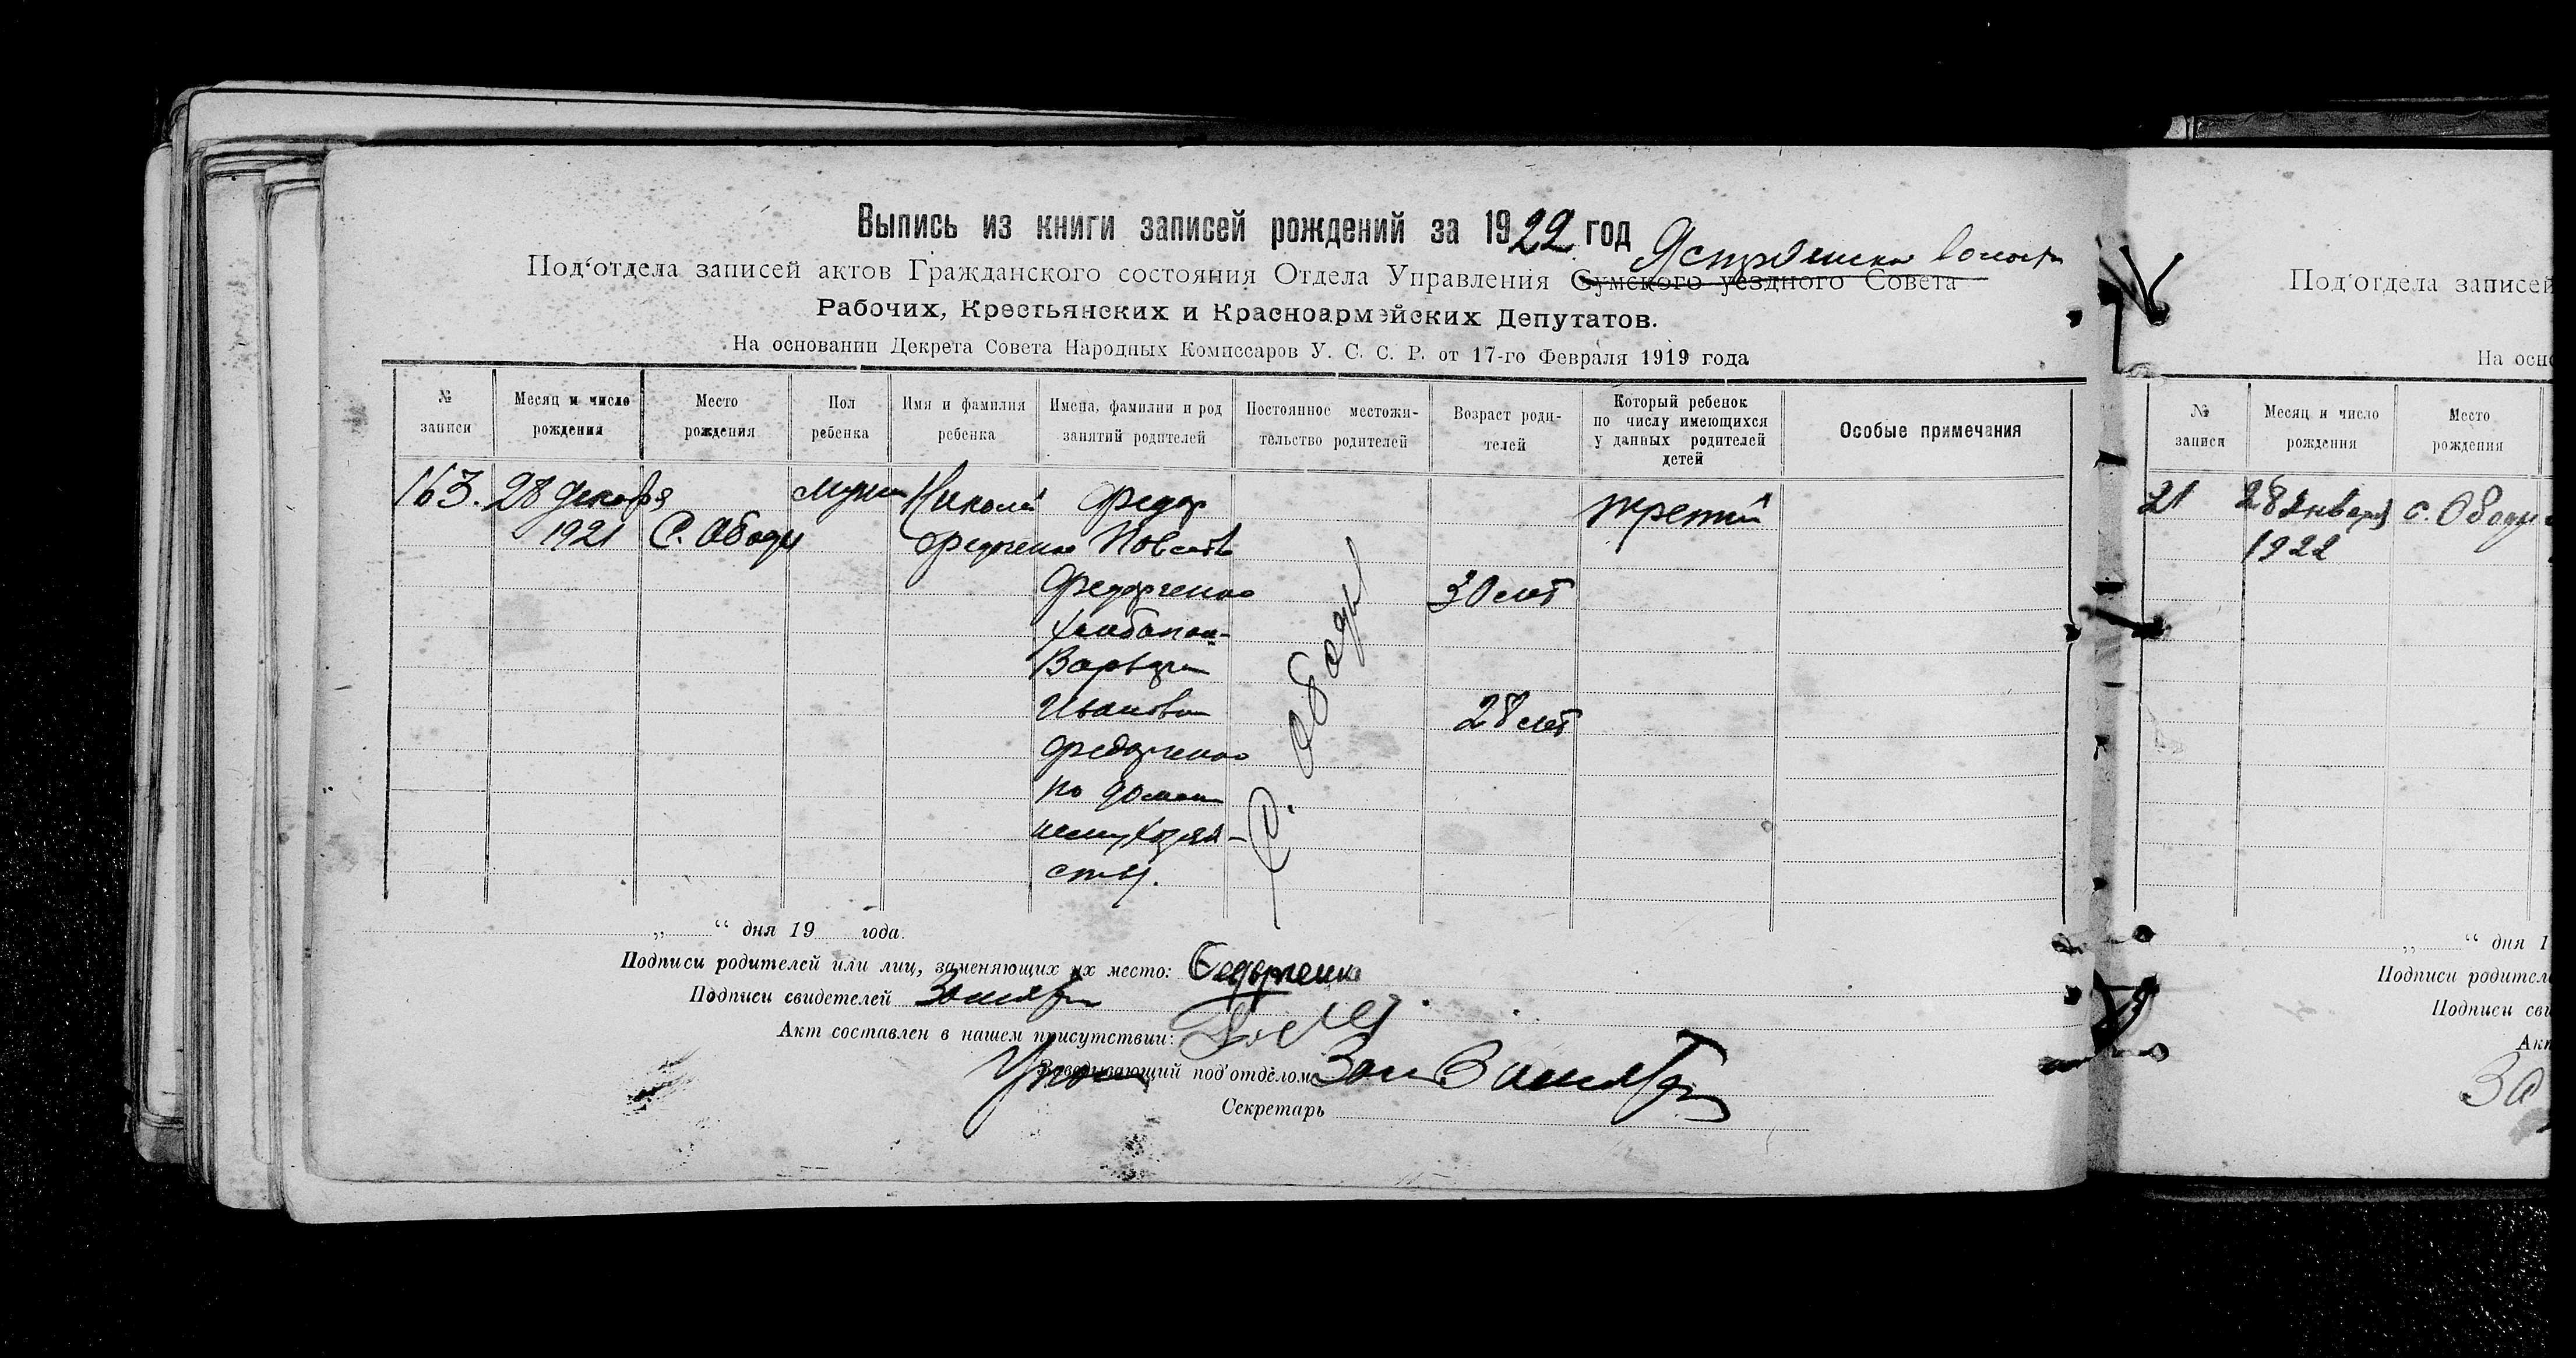 Выпись из книги записей рождений за 1922 год
Ястребинск волости
Под'отдела записей актов Гражданского состояния Отдела Управления Сумского уездного Совета
Рабочих, Крестьянских и Красноармейских Депутатов.
На основании Декрета Совета Народных Комиссаров У. С. С. Р. от 17-го Февраля 1919 года
№ записи
Месяц и число рождения
Место рождения
Пол ребенка
Имя и фамилия ребенка
Имена, фамилии и род занятий родителей
Постоянное местожительство родителей
Возраст родителей
Который ребенок по числу имеющихся у данных родителей детей
Особые примечания
163. 28 декабря муж Николай Федор третий
1921 С. Ободы Федорченко
Федорченко 30 лет
хлебопаш-
Варвара
Ивановна 28 лет
Федорченко
по домаш
нему хозяй-
ству.
С. Ободы
„ “ дня 19 года.
Подписи родителей или лиц, заменяющих их место: Федорченко
Подписи свидетелей
Акт составлен в нашем присутствии:
Заведывающий под'отделом
Секретарь
Под'отдела записей
На осно
№ записи
Месяц и число рождения
Место рождения
21 28 января с. Ободы
1922
„ “ дня 1
Подписи родител
Подписи сви
Акт
За